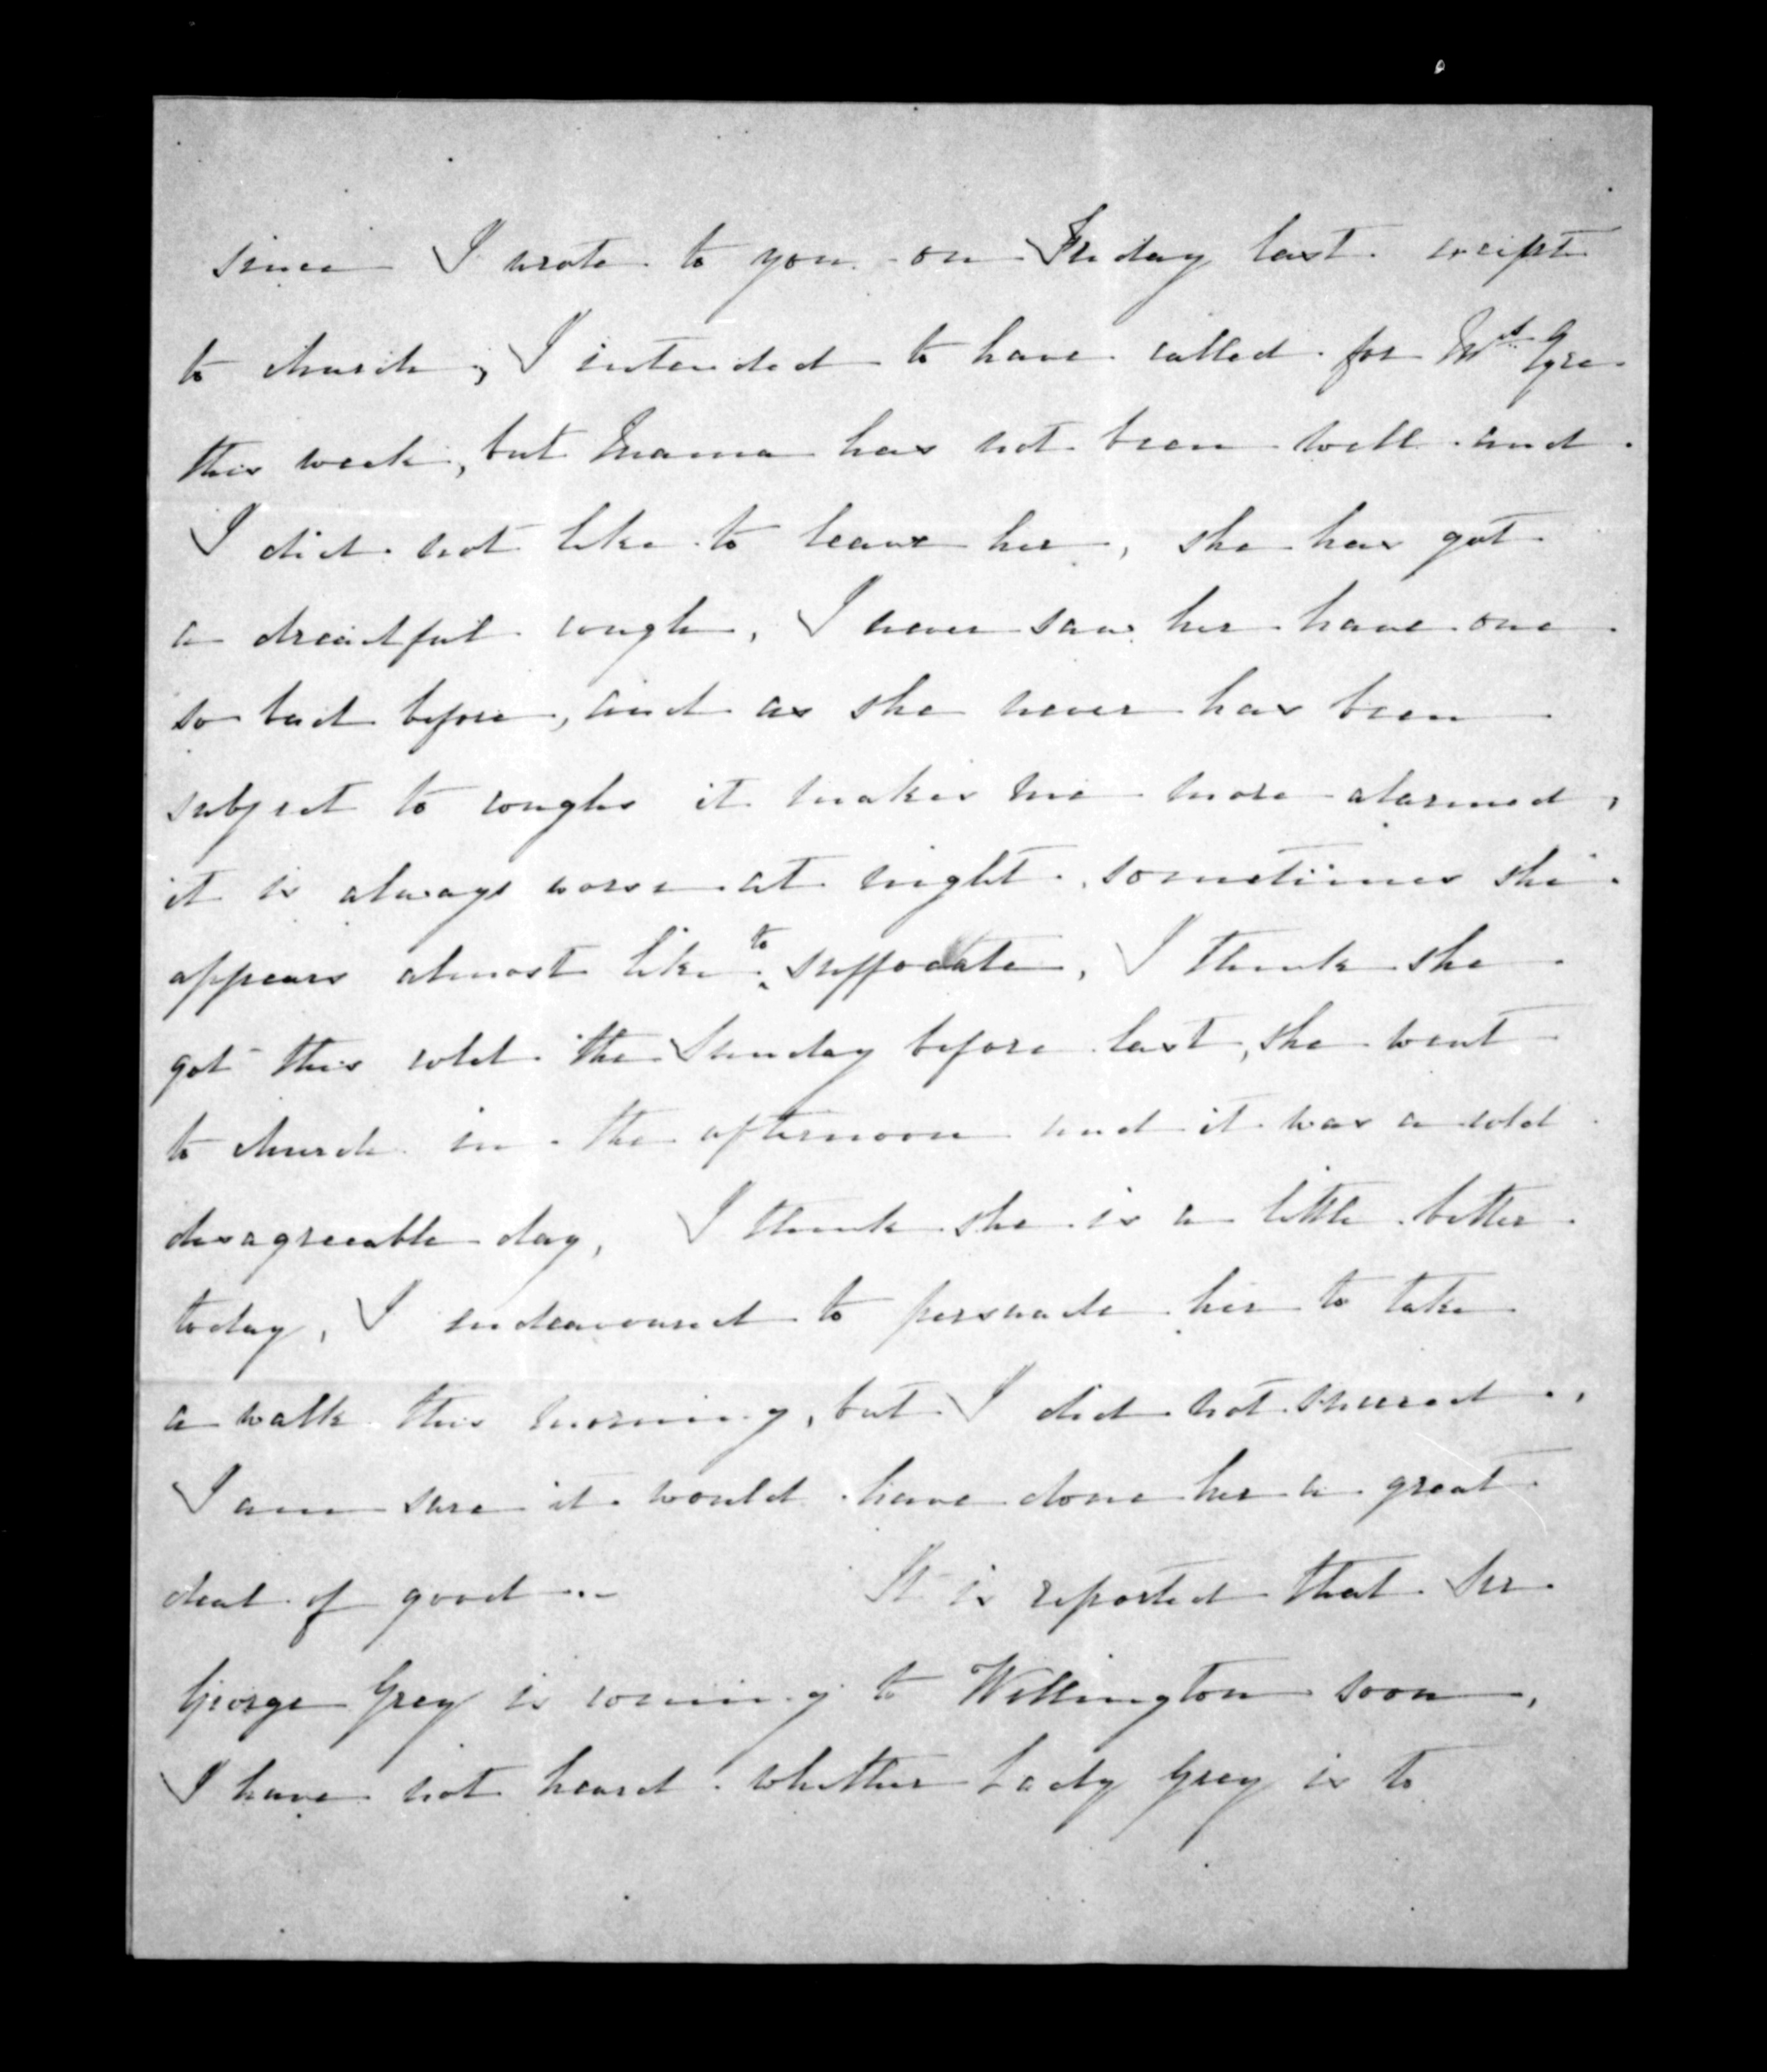 since I wrote to you on Friday last except
to church, I intended to have called for Mrs Eyre
this week, but Mama has not been well and
I did not like to leave her, she has got
a dreadful cough, I never saw her have one
so bad before, and as she never has been
subject to coughs it makes me more alarmed,
it is always worse at night, sometimes she
appears almost like to suffocate, I think she
got this cold the Sunday before last, she went
to church in the afternoon and it was a cold
disagreeable day, I think she is a little better
today, I endeavoured to persuade her to take
a walk this morning, but I did not succeed,
I am sure it would have done her a great
deal of good -- It is reported that Sir
George Grey is coming to Wellington soon,
I have not heard whether Lady Grey is to